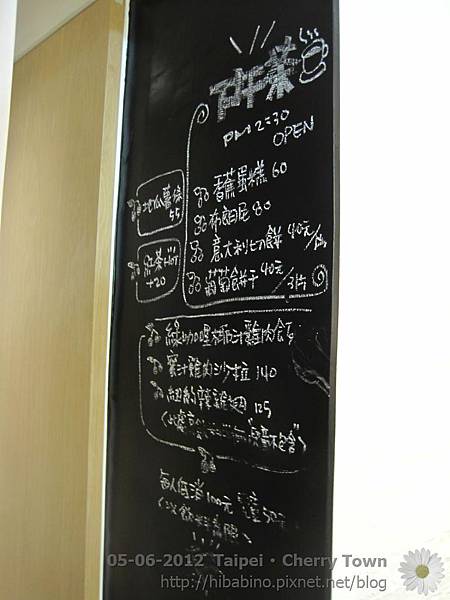 下午茶
PM 2:30
OPEN
香蕉蛋糕 60
布朗尼 80
意大利切餅 40元/片
葡萄餅干 40元/3片
地瓜薯條
55
紅茶 HOT
+20
綠咖喱椰汁雞肉飯
蜜汁雞肉沙拉 140
紐約辣雞翅 125
每人低消100元
05-06-2012 Taipei • Cherry Town
http://hibabino.pixnet.net/blog